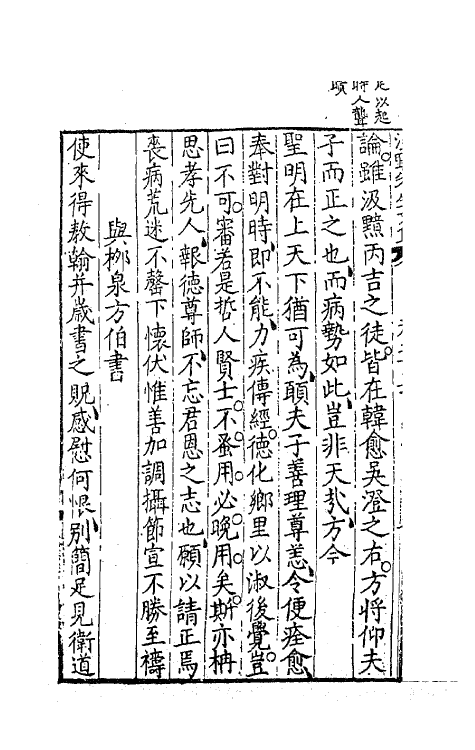 足以起
時人聾
聵
論雖汲黯丙吉之徒皆在韓愈吳澄之右方將仰夫
子而正之也而病勢如此豈非天㦲方今
聖明在上天下猶可為願夫子善理尊恙令便痊愈
奉對明時即不能力疾傳經德化鄉里以淑後覺豈
曰不可審若是哲人賢士不蚤用必晚用矣斯亦柟
思孝先人報德尊師不忘君恩之志也願以請正焉
喪病荒迷不罄下懷伏惟善加調攝節宣不勝至禱
與栁泉方伯書
使來得教翰并歲書之貺感慰何恨別簡足見衛道